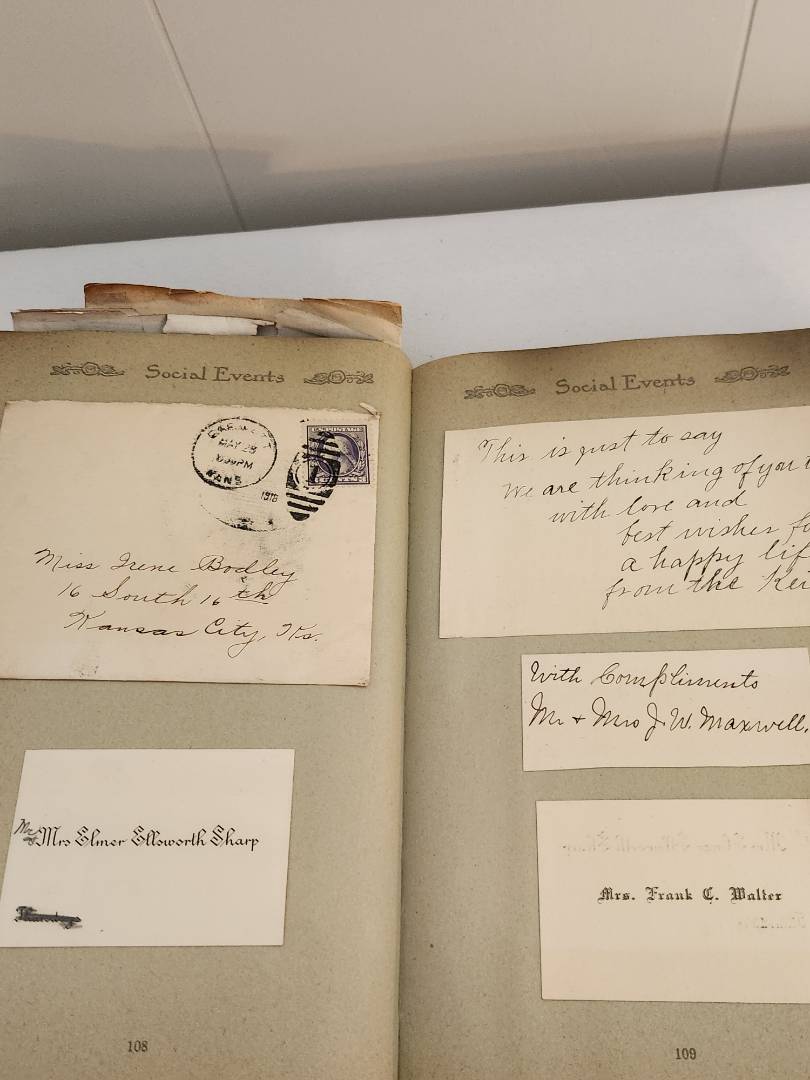 Social Events
GARNETT
MAY 28
KANS
1918
Miss Irene Bodley
16 South 16th
Kansas City, Ks.
Mr & Mrs Elmer Ellsworth Sharp
Thursdays
108
Social Events
This is just to say
We are thinking of you
with love and
best wishes
a happy
from the
With Compliments
Mr + Mrs J. W. Maxwell.
Mrs. Frank C. Walter
109